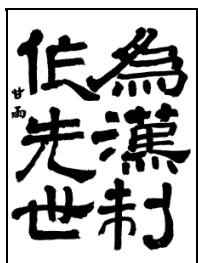 為漢制
作先世
甘雨